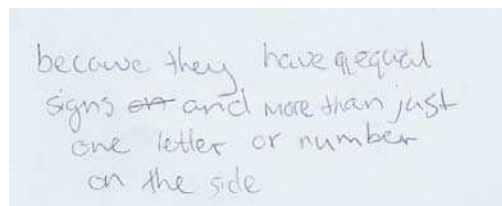 because they have equal
signs and more than just
one letter or number
on the side